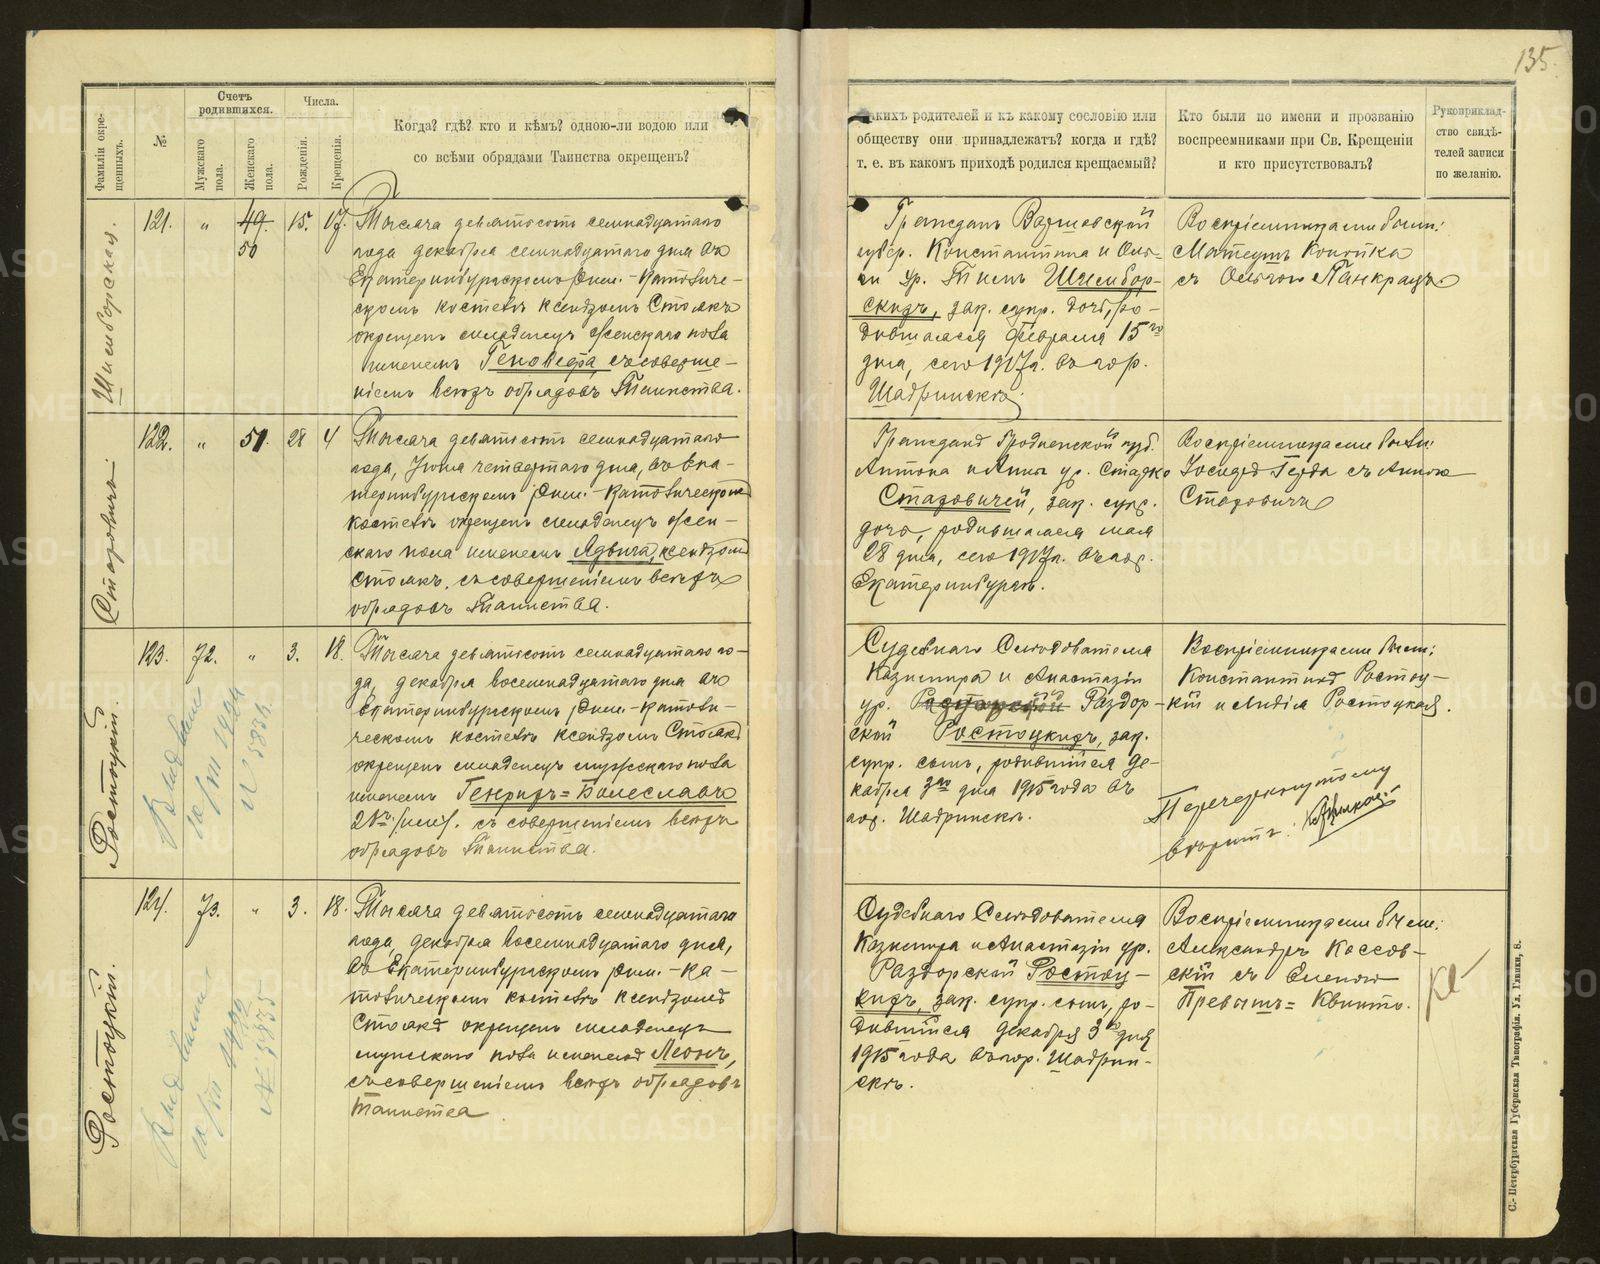 135.
Фамиліи окре-
щенныхъ.
№
Счетъ
родившихся.
Мужскаго
пола.
Женскаго
пола.
Числа.
Рожденія.
Крещенія.
Когда? гдѣ? кто и кѣмъ? одною-ли водою или
со всѣми обрядами Таинства окрещенъ?
какихъ родителей и къ какому сословію или
обществу они принадлежатъ? когда и гдѣ?
т. е. въ какомъ приходѣ родился крещаемый?
Кто были по имени и прозванію
воспреемниками при Св. Крещеніи
и кто присутствовалъ?
Руконриклад-
ство свидѣ-
телей записи
по желанію.
Шимборская.
121.
"
49
50
15.
17.
Тысяча девятьсотъ семнадцатаго
года декабря семнадцатаго дня въ
Екатеринбургскомъ Рим.-Католиче-
скомъ костелѣ ксендзомъ Столкъ
окрещенъ младенецъ женскаго пола
именемъ Геновефа, съ соверше-
ніемъ всѣхъ обрядовъ Таинства.
Гражданъ Варшавской
губер. Константина и Оль-
ги ур. Тимъ Шимбор-
скихъ, зак. супр. дочь, ро-
дившаяся февраля 15го
дня, сего 1917 г. въ гор.
Шадринскѣ.
Воспріемниками были:
Матеушъ Копотка
съ Ольгою Панкрацъ
Старовичъ.
122.
"
51.
28
4
Тысяча девятьсотъ семнадцатаго
года, Іюня четвертаго дня, въ Ека-
теринбургскомъ Рим.-Католическомъ
костелѣ окрещенъ младенецъ жен-
скаго пола именемъ Ядвига, ксендзомъ
Столкъ, съ совершеніемъ всѣхъ
обрядовъ Таинства.
Гражданъ Гродненской губ.
Антона и Анны ур.
зак. супр.
дочь, родившаяся мая
28 дня, сего 1917 г. въ гор.
Екатеринбургѣ.
Воспріемниками были:
съ Анною
Ростоцкій.
123.
72.
"
3.
18.
Тысяча девятьсотъ семнадцатаго го-
да, декабря восемнадцатаго дня въ
Екатеринбургскомъ Рим.-Католи-
ческомъ костелѣ ксендзомъ Столкъ
окрещенъ младенецъ мужскаго пола
именемъ Генрихъ=Болеславъ
2хъ /им/. съ совершеніемъ всѣхъ
обрядовъ Таинства.
Судебнаго Слѣдователя
Казимира и Анастазіи
ур. Раздор-
ской Ростоцкихъ, зак.
супр. сынъ, родившійся де-
кабря 3го дня 1915 года въ
гор. Шадринскѣ.
Воспріемниками были:
Константинъ Ростоц-
кій и Лидія Ростоцкая.
Перечеркнутому
вѣрить:
Ростоцкій.
124.
73.
"
3.
18.
Тысяча девятьсотъ семнадцатаго
года, декабря восемнадцатаго дня,
въ Екатеринбургскомъ Рим.-Ка-
толическомъ костелѣ ксендзомъ
Столкъ окрещенъ младенецъ
мужскаго пола именемъ Леонъ,
съ совершеніемъ всѣхъ обрядовъ
Таинства.
Судебнаго Слѣдователя
Казимира и Анастазіи ур.
Раздорской Ростоц-
кихъ, зак. супр. сынъ, ро-
дившійся декабря 3го дня
1915 года въ гор. Шадрин-
скѣ.
Воспріемниками были:
Александръ Коссов-
скій съ Еленою
Превышъ=Квинто.
С.-Петербургская Губернская Типографія. Ул. Глинки, 8.
METRIKI.GASO-URAL.RU